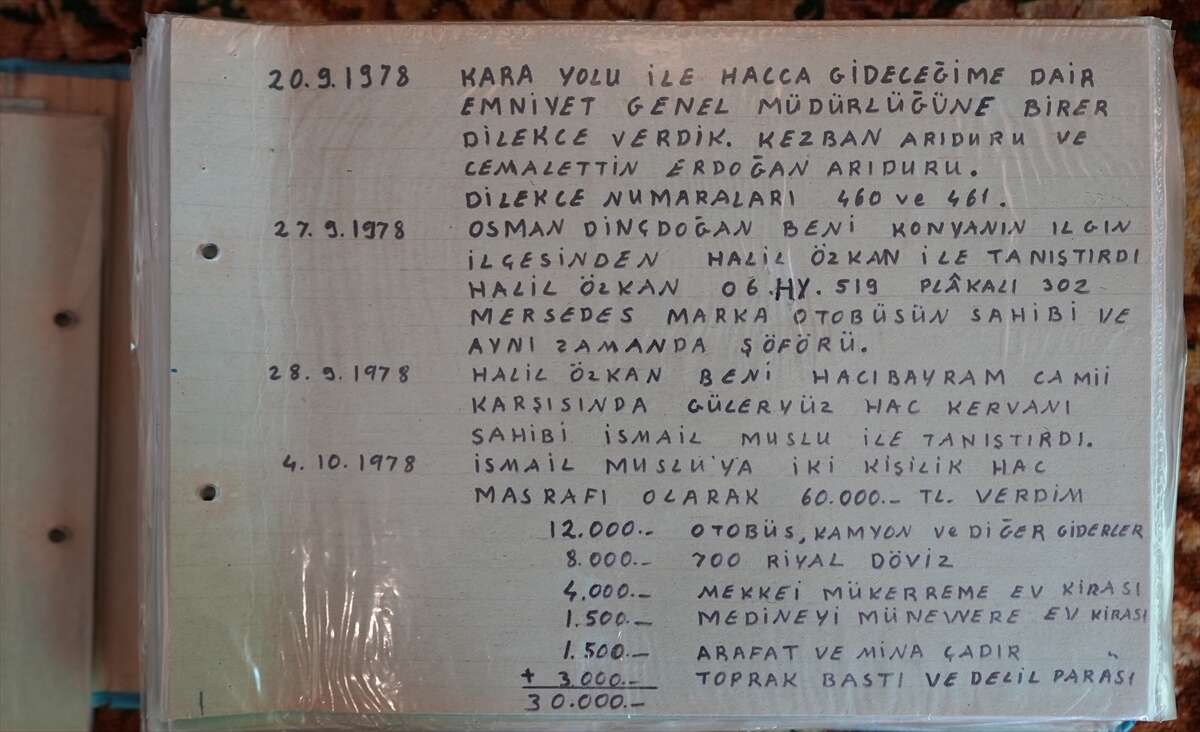 20.9.1978 KARA YOLU İLE HACCA GİDECEĞİME DAİR
EMNİYET GENEL MÜDÜRLÜĞÜNE BİRER
DİLEKCE VERDİK. KEZBAN ARIDURU VE
CEMALETTİN ERDOĞAN ARIDURU.
DİLEKCE NUMARALARI 460 ve 461.
27.9.1978 OSMAN DİNÇDOĞAN BENİ KONYANIN ILGIN
İLÇESİNDEN HALİL ÖZKAN İLE TANIŞTIRDI
HALİL ÖZKAN 06.HY.519 PLÂKALI 302
MERSEDES MARKA OTOBÜSÜN SAHİBİ VE
AYNI ZAMANDA ŞÖFÖRÜ.
28.9.1978 HALİL ÖZKAN BENİ HACIBAYRAM CAMİİ
KARŞISINDA GÜLERYÜZ HAC KERVANI
SAHİBİ İSMAİL MUSLU İLE TANIŞTIRDI.
4.10.1978 İSMAİL MUSLU'YA İKİ KİŞİLİK HAC
MASRAFI OLARAK 60.000.- TL. VERDİM
12.000.- OTOBÜS, KAMYON ve DİĞER GİDERLER
8.000.- 700 RİYAL DÖVİZ
4.000.- MEKKEİ MÜKERREME EV KİRASI
1.500.- MEDİNEYİ MÜNEVVERE EV KİRASI
1.500.- ARAFAT VE MİNA ÇADIR "
+ 3.000.- TOPRAK BASTI VE DELİL PARASI
30.000.-
1